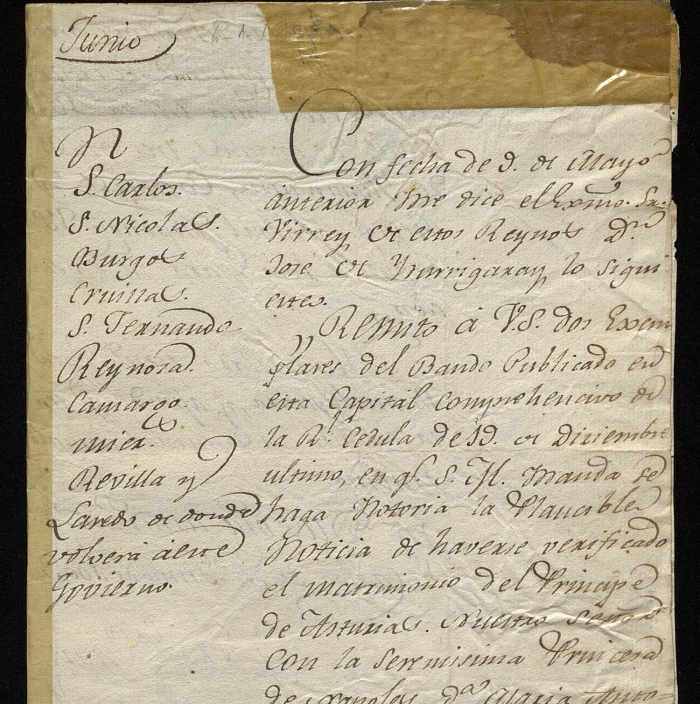 Junio
S. Carlos.
S. Nicolas.
Burgos
Cruillas.
S. Fernando
Reynosa.
Camargo.
mier.
Revilla y
Laredo de donde
volverá á este
Govierno.
Con fecha de 9. de Mayo
anterior me dice el Exmo. Sr.
Virrey de estos Reynos Dn.
José de Yturrigaray lo sigui
ente.
"Remito á V.S. dos Exem
plares del Bando Publicado en
esta Capital comprehencivo de
la Rl. Cedula de 19. de Diciembre
ultimo, en qe. S. M. manda se
haga Notoria la Plaucible
Noticia de haverse verificado
el matrimonio del Principe
de Asturias. Nuestro Señor
con la Serenisima Princesa
de Napoles Da. Maria Anto=